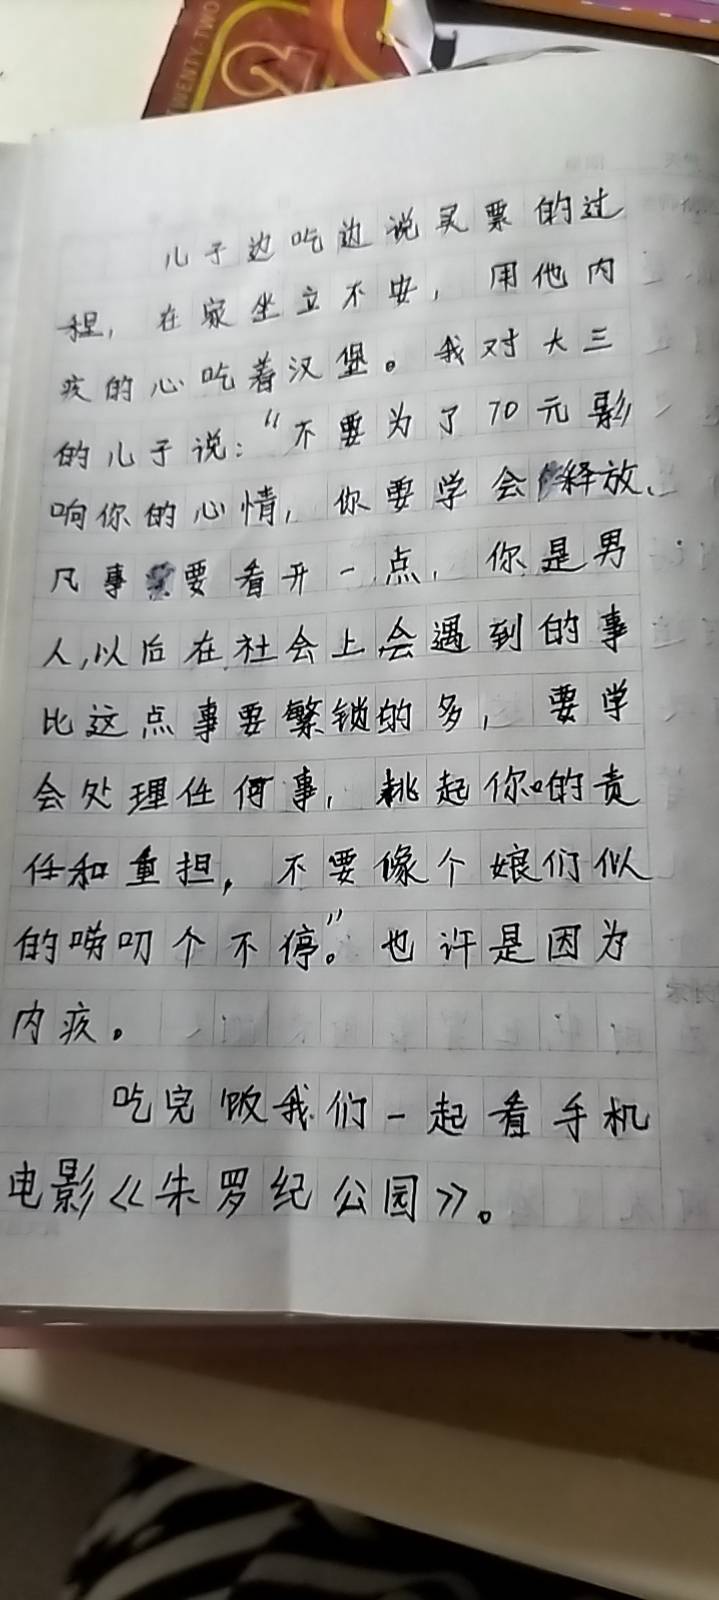 TWENTY-TWO
儿子边吃边说买票的过
程,在家坐立不安,用他内
疚的心吃着汉堡。我对大三
的儿子说:“不要为了70元影
响你的心情,你要学会释放、
凡事要看开一点,你是男
人,以后在社会上会遇到的事
比这点事要繁锁的多,要学
会处理任何事,挑起你的责
任和重担,不要像个娘们似
的唠叨个不停。”也许是因为
内疚。
吃完饭我们一起看手机
电影《朱罗纪公园》。